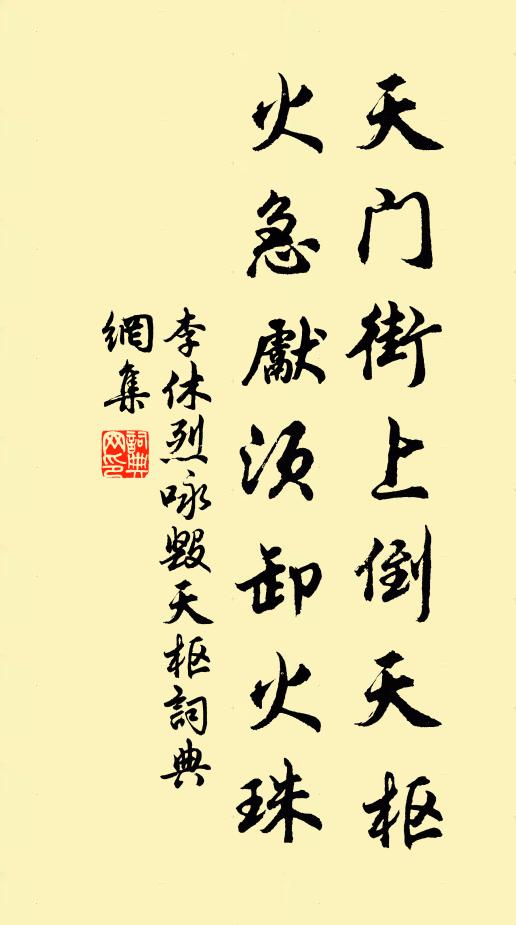 天门街上倒天枢
火急獻须卸火珠
李休烈咏毁天枢詞典
網集
詞典
网印